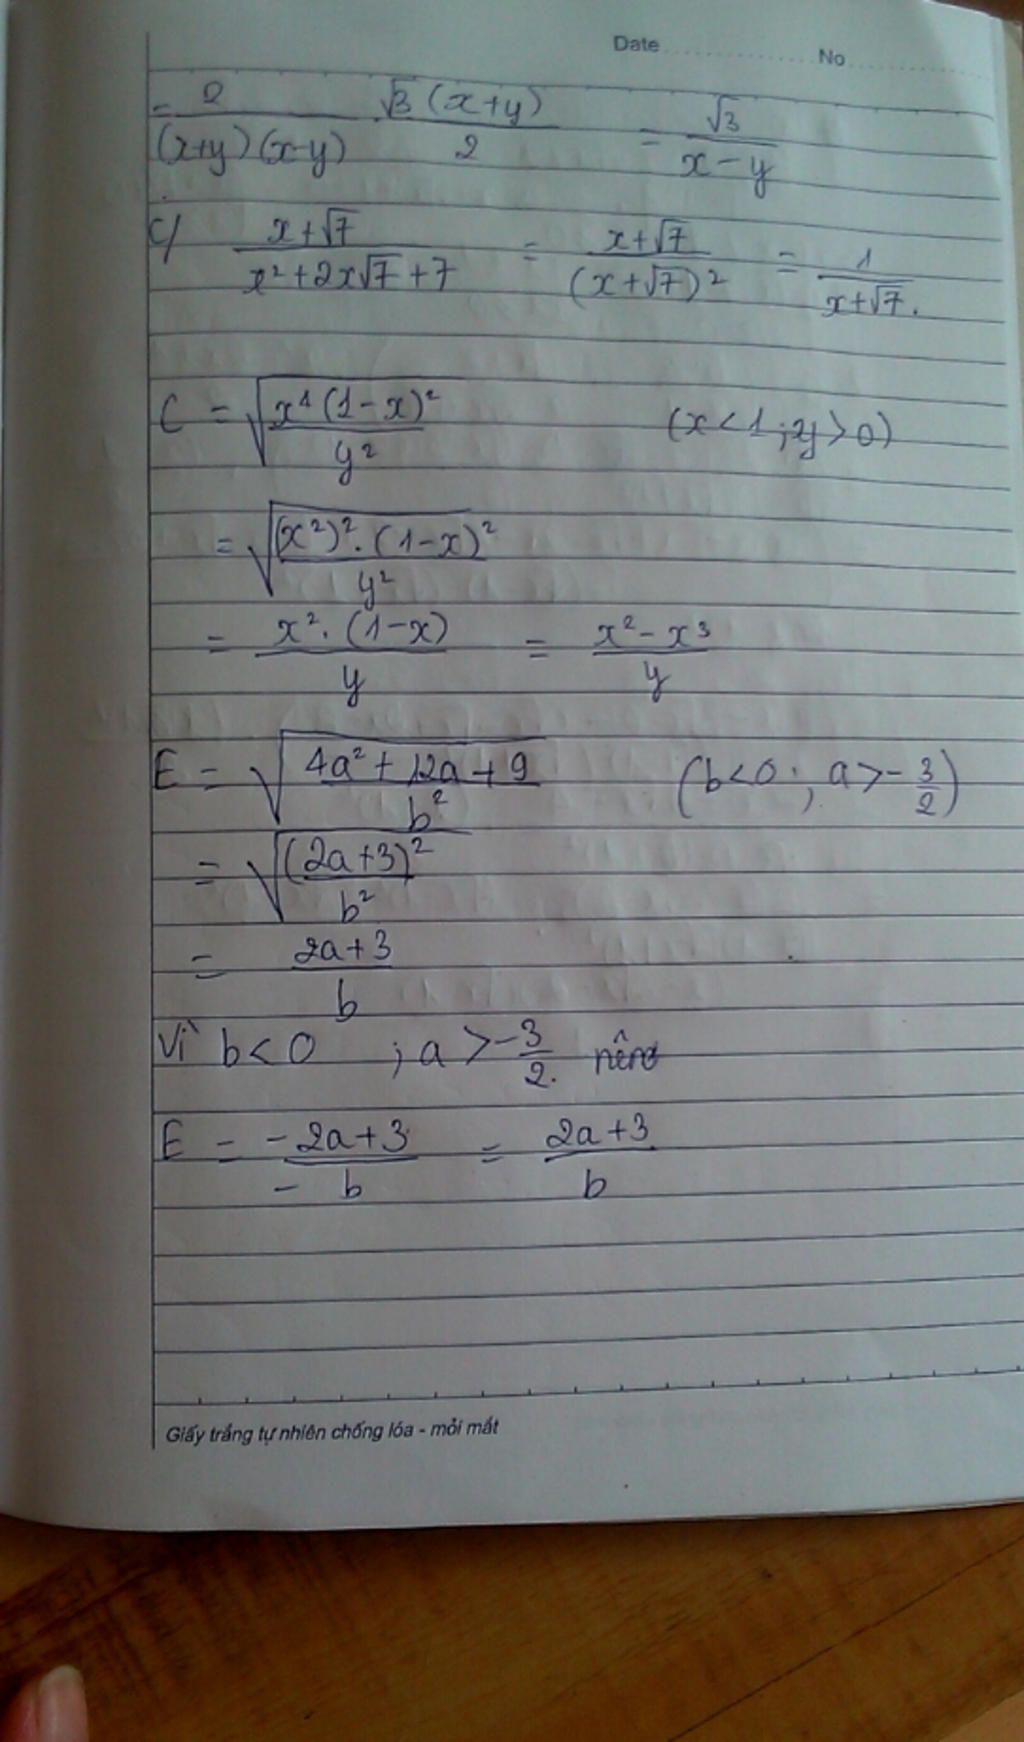 Date No
= 2 / (x+y)(x-y) √3(x+y) / 2 = √3 / x-y
c/ x+√7 / x²+2x√7+7 = x+√7 / (x+√7)² = 1 / x+√7.
C = √(x⁴(1-x)² / y²) (x<1;y>0)
= √((x²)².(1-x)² / y²)
= x².(1-x) / y = x²-x³ / y
E = √(4a²+12a+9 / b²) (b<0; a>-3/2)
= √((2a+3)² / b²)
= 2a+3 / b
Vì b<0 ; a>-3/2. nên
E = -2a+3 / -b = 2a+3 / b
Giấy trắng tự nhiên chống lóa - mỏi mắt